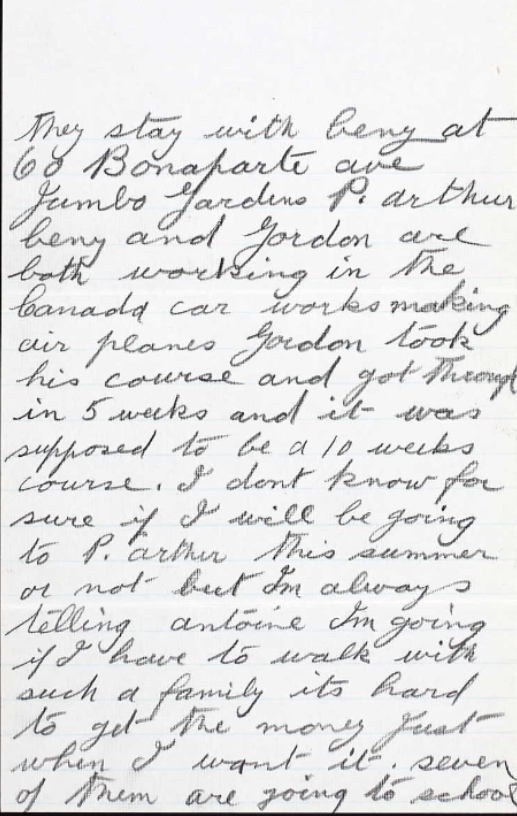 They stay with beny at
60 Bonaparte ave
Jumbo Gardens P. arthur
beny and Gordon are
both working in the
Canada car works making
air planes Gordon took
his course and got through
in 5 weeks and it was
supposed to be a 10 weeks
course. I dont know for
sure if I will be going
to P. arthur this summer
or not but Im always
telling antoine Im going
if I have to walk with
such a family its hard
to get the money just
when I want it. seven
of them are going to school